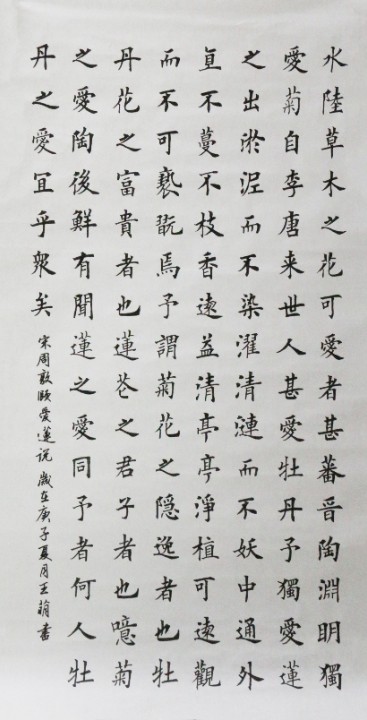 水陸草木之花可愛者甚蕃晋陶淵明獨
愛菊自李唐来世人甚愛牡丹予獨愛蓮
之出淤泥而不染濯清漣而不妖中通外
直不蔓不枝香遠益清亭亭淨植可遠觀
而不可褻翫焉予謂菊花之隠逸者也牡
丹花之富貴者也蓮花之君子者也噫菊
之愛陶後鮮有聞蓮之愛同予者何人牡
丹之愛宜乎衆矣
宋周敦頤爱蓮说 歲在庚子夏月王萌書